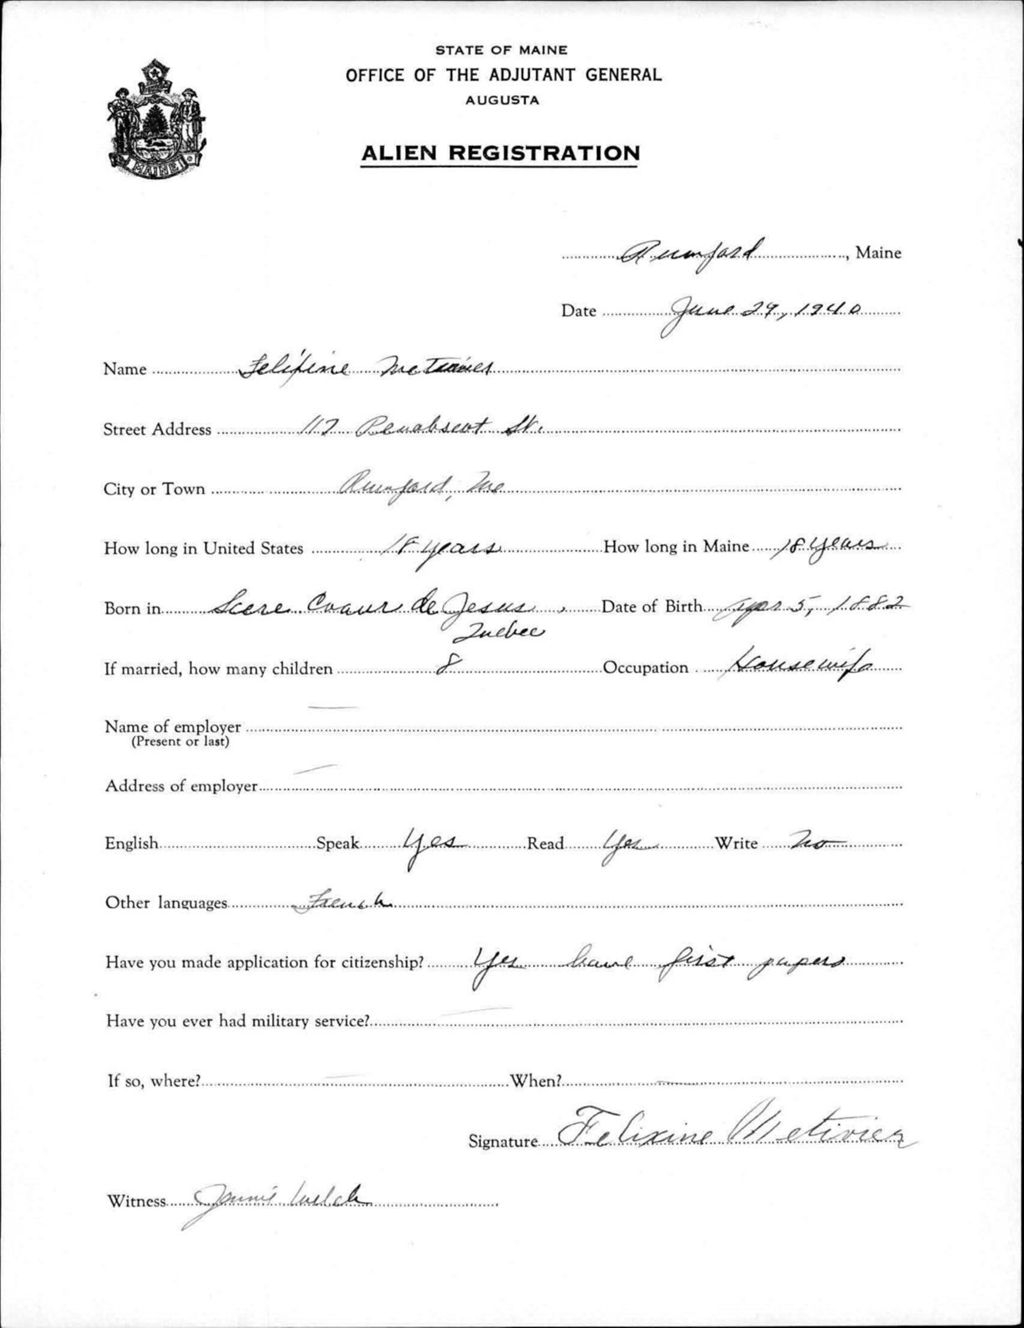 STATE OF MAINE
OFFICE OF THE ADJUTANT GENERAL
AUGUSTA
ALIEN REGISTRATION
MAINE
Rumford, Maine
Date June 29, 1940
Name Felixine Metivier
Street Address 117 Penobscot St.
City or Town Rumford, Me
How long in United States 18 years How long in Maine 18 years
Born in Scere Coaur de Jesus, Date of Birth Apr 5, 1882
Quebec
If married, how many children 8 Occupation Housewife
Name of employer
(Present or last)
Address of employer
English Speak Yes Read Yes Write No
Other languages French
Have you made application for citizenship? Yes have first papers
Have you ever had military service?
If so, where? When?
Signature Felixine Metivier
Witness Jennie Welch